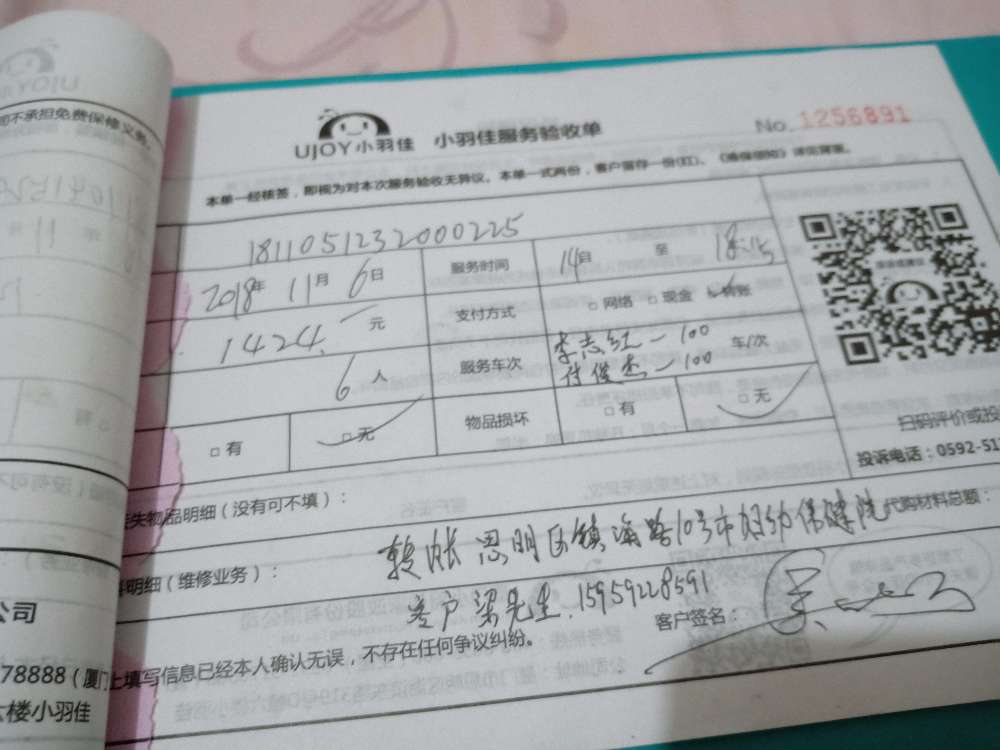 UJOY小羽佳 小羽佳服务验收单
No. 1256891
本单一经核签，即视为对本次服务验收无异议。本单一式两份，客户留存一份(红)。《维保须知》详见背面。
1811051232000225
2018年 11月 6日 服务时间 14自 至 18:15
1424. 元 支付方式 □ 网络 □ 现金 转账
6 人 服务车次 李志红一100 车/次
付俊杰一100
□ 有 □ 无 物品损坏 □ 有 □ 无
扫码评价或投
投诉电话：0592-51
失物品明细（没有可不填）：
明细（维修业务）：
转账 思明区镇海路10号市妇幼保健院
代购材料总额：
客户 梁先生. 15959228591
客户签名：
上填写信息已经本人确认无误，不存在任何争议纠纷。
不承担免费保修义务
公司
78888（厦门
六楼小羽佳